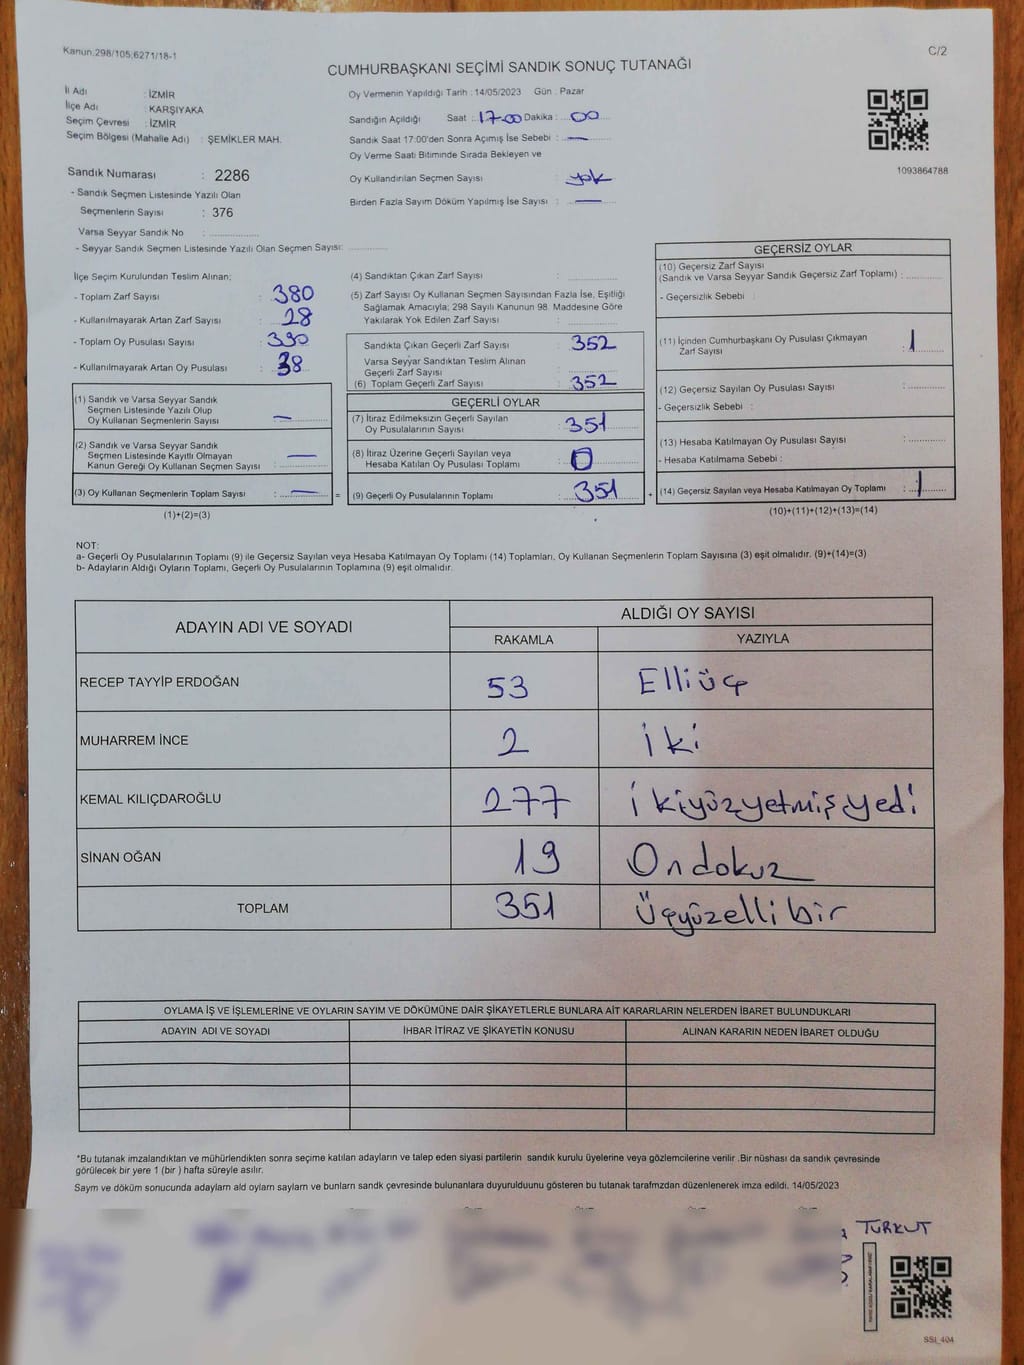 Kanun.298/105,6271/18-1
C/2
CUMHURBAŞKANI SEÇİMİ SANDIK SONUÇ TUTANAĞI
İl Adı : İZMİR
İlçe Adı : KARŞIYAKA
Seçim Çevresi : İZMİR
Seçim Bölgesi (Mahalle Adı) : ŞEMİKLER MAH.
Sandık Numarası : 2286
- Sandık Seçmen Listesinde Yazılı Olan
Seçmenlerin Sayısı : 376
Varsa Seyyar Sandık No :
- Seyyar Sandık Seçmen Listesinde Yazılı Olan Seçmen Sayısı:
Oy Vermenin Yapıldığı Tarih : 14/05/2023 Gün : Pazar
Sandığın Açıldığı Saat : 17-00 Dakika : 00
Sandık Saat 17:00'den Sonra Açımış İse Sebebi : —
Oy Verme Saati Bitiminde Sırada Bekleyen ve
Oy Kullandırılan Seçmen Sayısı : yok
Birden Fazla Sayım Döküm Yapılmış İse Sayısı : —
1093864788
İlçe Seçim Kurulundan Teslim Alınan;
- Toplam Zarf Sayısı : 380
- Kullanılmayarak Artan Zarf Sayısı : 28
- Toplam Oy Pusulası Sayısı : 390
- Kullanılmayarak Artan Oy Pusulası : 38
(1) Sandık ve Varsa Seyyar Sandık
Seçmen Listesinde Yazılı Olup
Oy Kullanan Seçmenlerin Sayısı : —
(2) Sandık ve Varsa Seyyar Sandık
Seçmen Listesinde Kayıtlı Olmayan
Kanun Gereği Oy Kullanan Seçmen Sayısı : —
(3) Oy Kullanan Seçmenlerin Toplam Sayısı : — =
(1)+(2)=(3)
(4) Sandıktan Çıkan Zarf Sayısı :
(5) Zarf Sayısı Oy Kullanan Seçmen Sayısından Fazla İse, Eşitliği
Sağlamak Amacıyla; 298 Sayılı Kanunun 98. Maddesine Göre
Yakılarak Yok Edilen Zarf Sayısı :
Sandıkta Çıkan Geçerli Zarf Sayısı : 352
Varsa Seyyar Sandıktan Teslim Alınan
Geçerli Zarf Sayısı :
(6) Toplam Geçerli Zarf Sayısı : 352
GEÇERLİ OYLAR
(7) İtiraz Edilmeksizin Geçerli Sayılan
Oy Pusulalarının Sayısı : 351
(8) İtiraz Üzerine Geçerli Sayılan veya
Hesaba Katılan Oy Pusulası Toplamı : 0
(9) Geçerli Oy Pusulalarının Toplamı : 351 +
GEÇERSİZ OYLAR
(10) Geçersiz Zarf Sayısı
(Sandık ve Varsa Seyyar Sandık Geçersiz Zarf Toplamı) :
- Geçersizlik Sebebi :
(11) İçinden Cumhurbaşkanı Oy Pusulası Çıkmayan
Zarf Sayısı : 1
(12) Geçersiz Sayılan Oy Pusulası Sayısı :
- Geçersizlik Sebebi :
(13) Hesaba Katılmayan Oy Pusulası Sayısı :
- Hesaba Katılmama Sebebi :
(14) Geçersiz Sayılan veya Hesaba Katılmayan Oy Toplamı : 1
(10)+(11)+(12)+(13)=(14)
NOT:
a- Geçerli Oy Pusulalarının Toplamı (9) ile Geçersiz Sayılan veya Hesaba Katılmayan Oy Toplamı (14) Toplamları, Oy Kullanan Seçmenlerin Toplam Sayısına (3) eşit olmalıdır. (9)+(14)=(3)
b- Adayların Aldığı Oyların Toplamı, Geçerli Oy Pusulalarının Toplamına (9) eşit olmalıdır.
ADAYIN ADI VE SOYADI ALDIĞI OY SAYISI
RAKAMLA YAZIYLA
RECEP TAYYİP ERDOĞAN 53 Elliüç
MUHARREM İNCE 2 iki
KEMAL KILIÇDAROĞLU 277 ikiyüzyetmişyedi
SİNAN OĞAN 19 Ondokuz
TOPLAM 351 Üçyüzellibir
OYLAMA İŞ VE İŞLEMLERİNE VE OYLARIN SAYIM VE DÖKÜMÜNE DAİR ŞİKAYETLERLE BUNLARA AİT KARARLARIN NELERDEN İBARET BULUNDUKLARI
ADAYIN ADI VE SOYADI İHBAR İTİRAZ VE ŞİKAYETİN KONUSU ALINAN KARARIN NEDEN İBARET OLDUĞU
*Bu tutanak imzalandıktan ve mühürlendikten sonra seçime katılan adayların ve talep eden siyasi partilerin sandık kurulu üyelerine veya gözlemcilerine verilir .Bir nüshası da sandık çevresinde
görülecek bir yere 1 (bir ) hafta süreyle asılır.
Saym ve döküm sonucunda adaylarn ald oylarn saylarn ve bunlarn sandk çevresinde bulunanlara duyurulduunu gösteren bu tutanak tarafmzdan düzenlenerek imza edildi. 14/05/2023
TURKUT
SSI_404